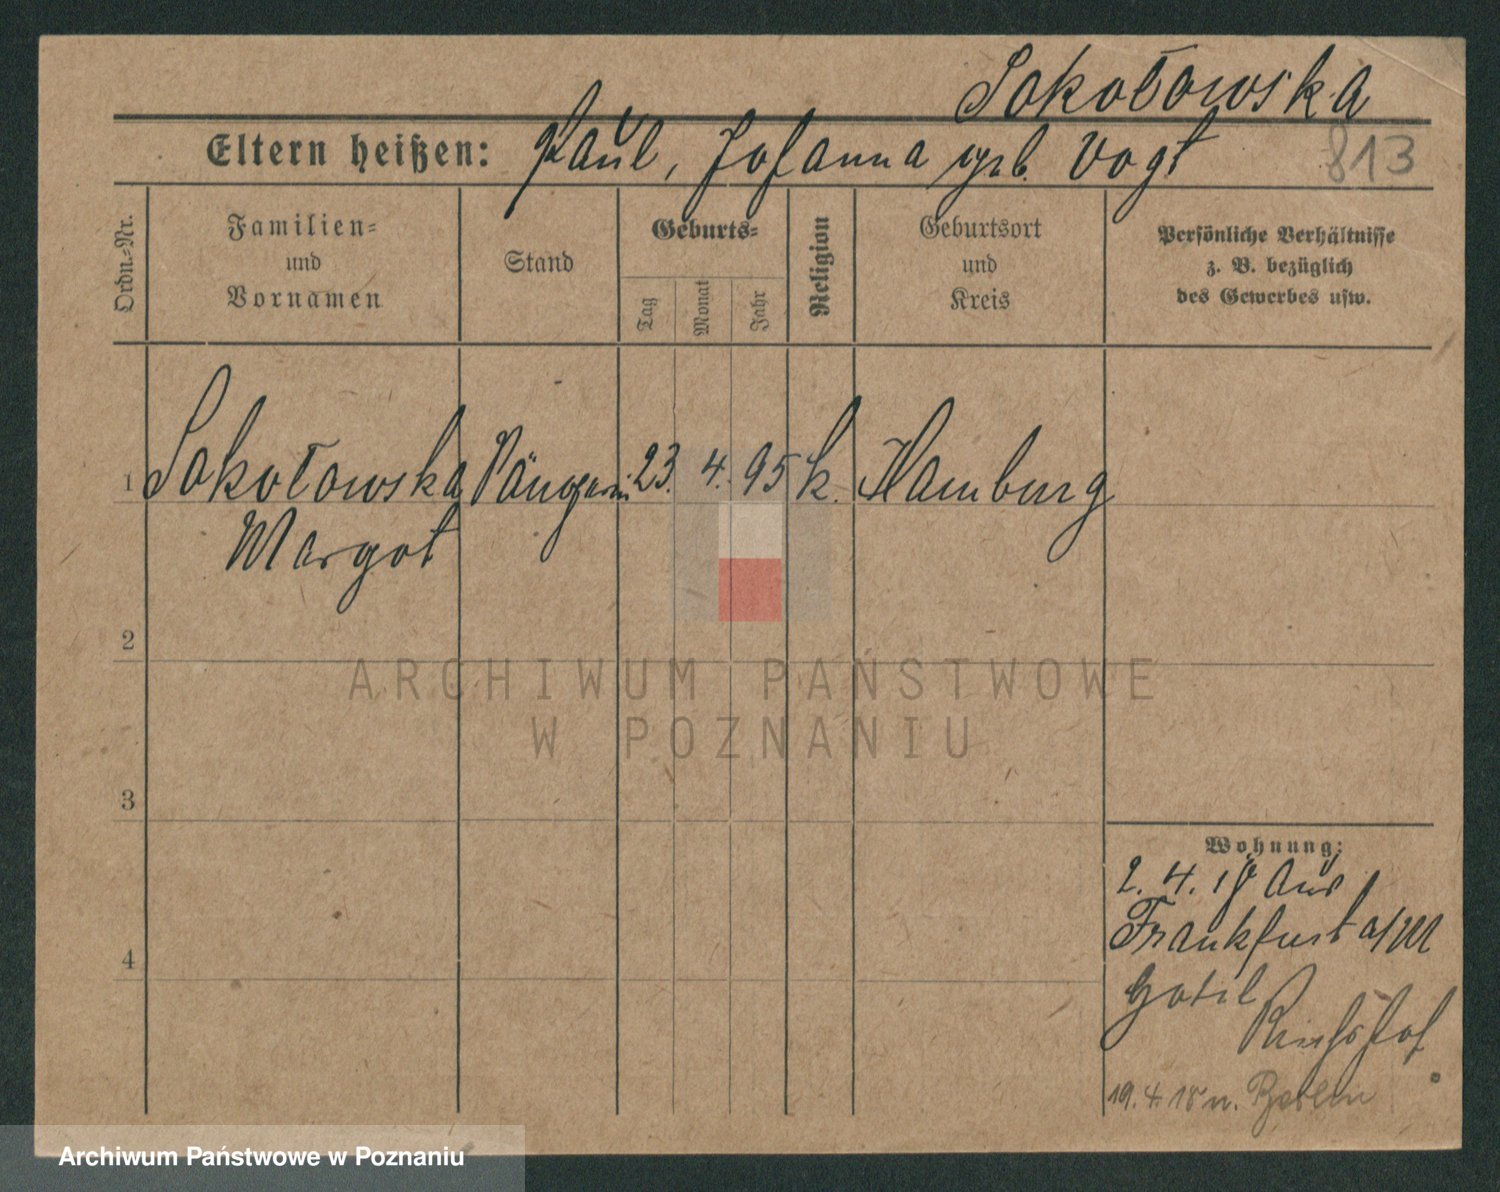 Sokołowska
Eltern heißen: Paul, Johanna geb. Vogt
813
Ordn.-Nr.
Familien-
und
Vornamen
Stand
Geburts-
Tag
Monat
Jahr
Religion
Geburtsort
und
Kreis
Persönliche Verhältnisse
z. B. bezüglich
des Gewerbes usw.
1 Sokołowska Sängerin 23. 4. 95 k. Hamburg
Margot
2
3
4
Wohnung:
2. 4. 18 aus
Frankfurt a/M
Hotel
Reichshof
19. 4. 18 n. Berlin
ARCHIWUM PAŃSTWOWE
W POZNANIU
Archiwum Państwowe w Poznaniu